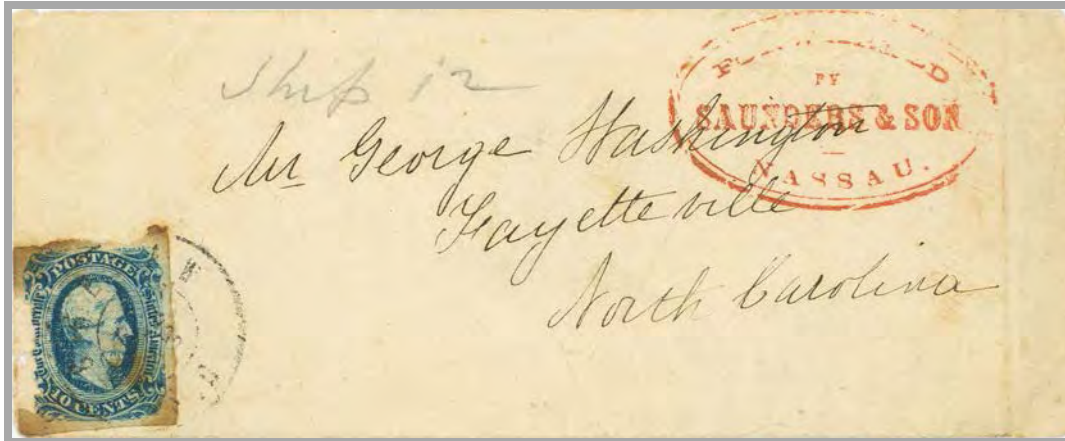 Ship 12
BY
SAUNDERS & SON
NASSAU.
Mr George Washington
Fayetteville
North Carolina
POSTAGE
10 CENTS